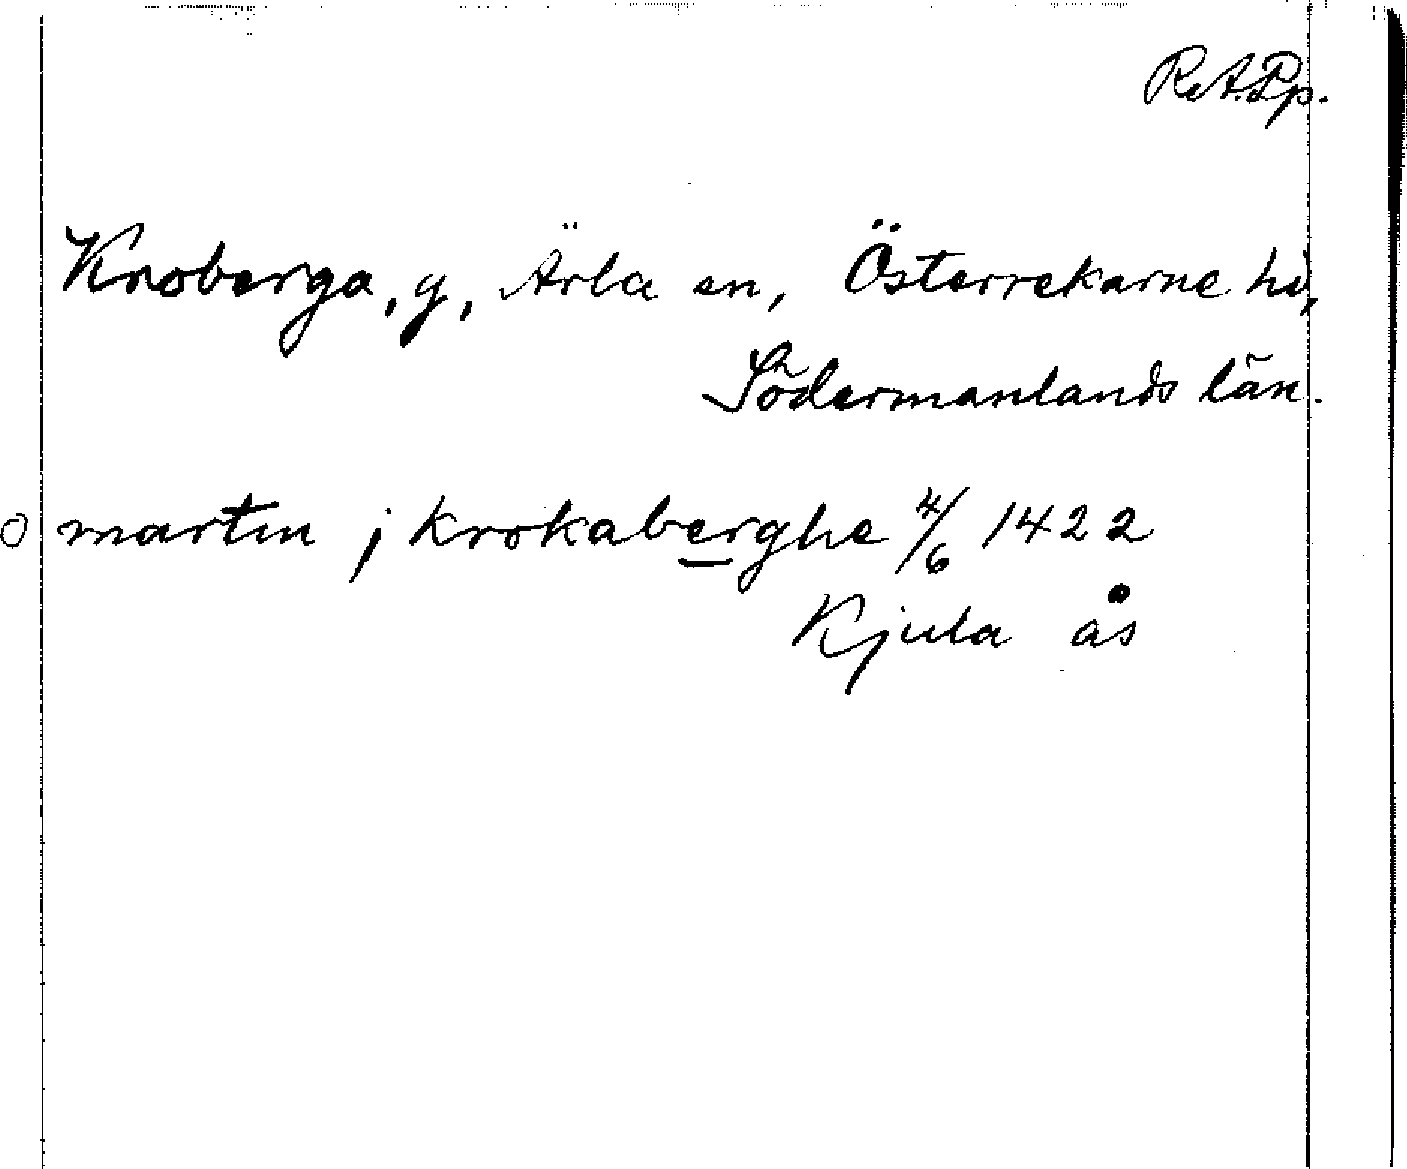 R.A.Pp.
Kroberga, g, Ärla sn, Österrekarne hd,
Södermanlands län.
o martin j krokaberghe 4/6 1422
Kjula ås